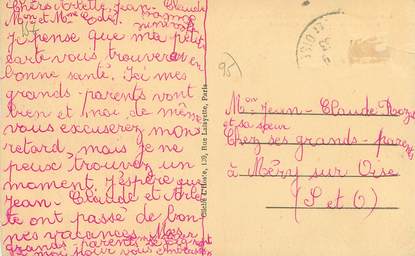 Chers Arlette, Jean-Claude
Mr et Mme
mamie
Je pense que ma petite
carte vous trouveras en
bonne santé. Ici mes
grands-parents vont
bien et moi, de même
vous excuserez mon
retard, mais je ne
peux trouvez un
moment. J'espère que
Jean-Claude et Arlet-
te ont passé de bon-
nes vacances. Mes
grands-parents se joignent
à moi pour vous embrasser
Cliché L'Hoste, 139, Rue Lafayette, Paris
95
Mon Jean-Claude
et sa sœur
Chez ses grands-parents
à Méry sur Oise
(S et O)